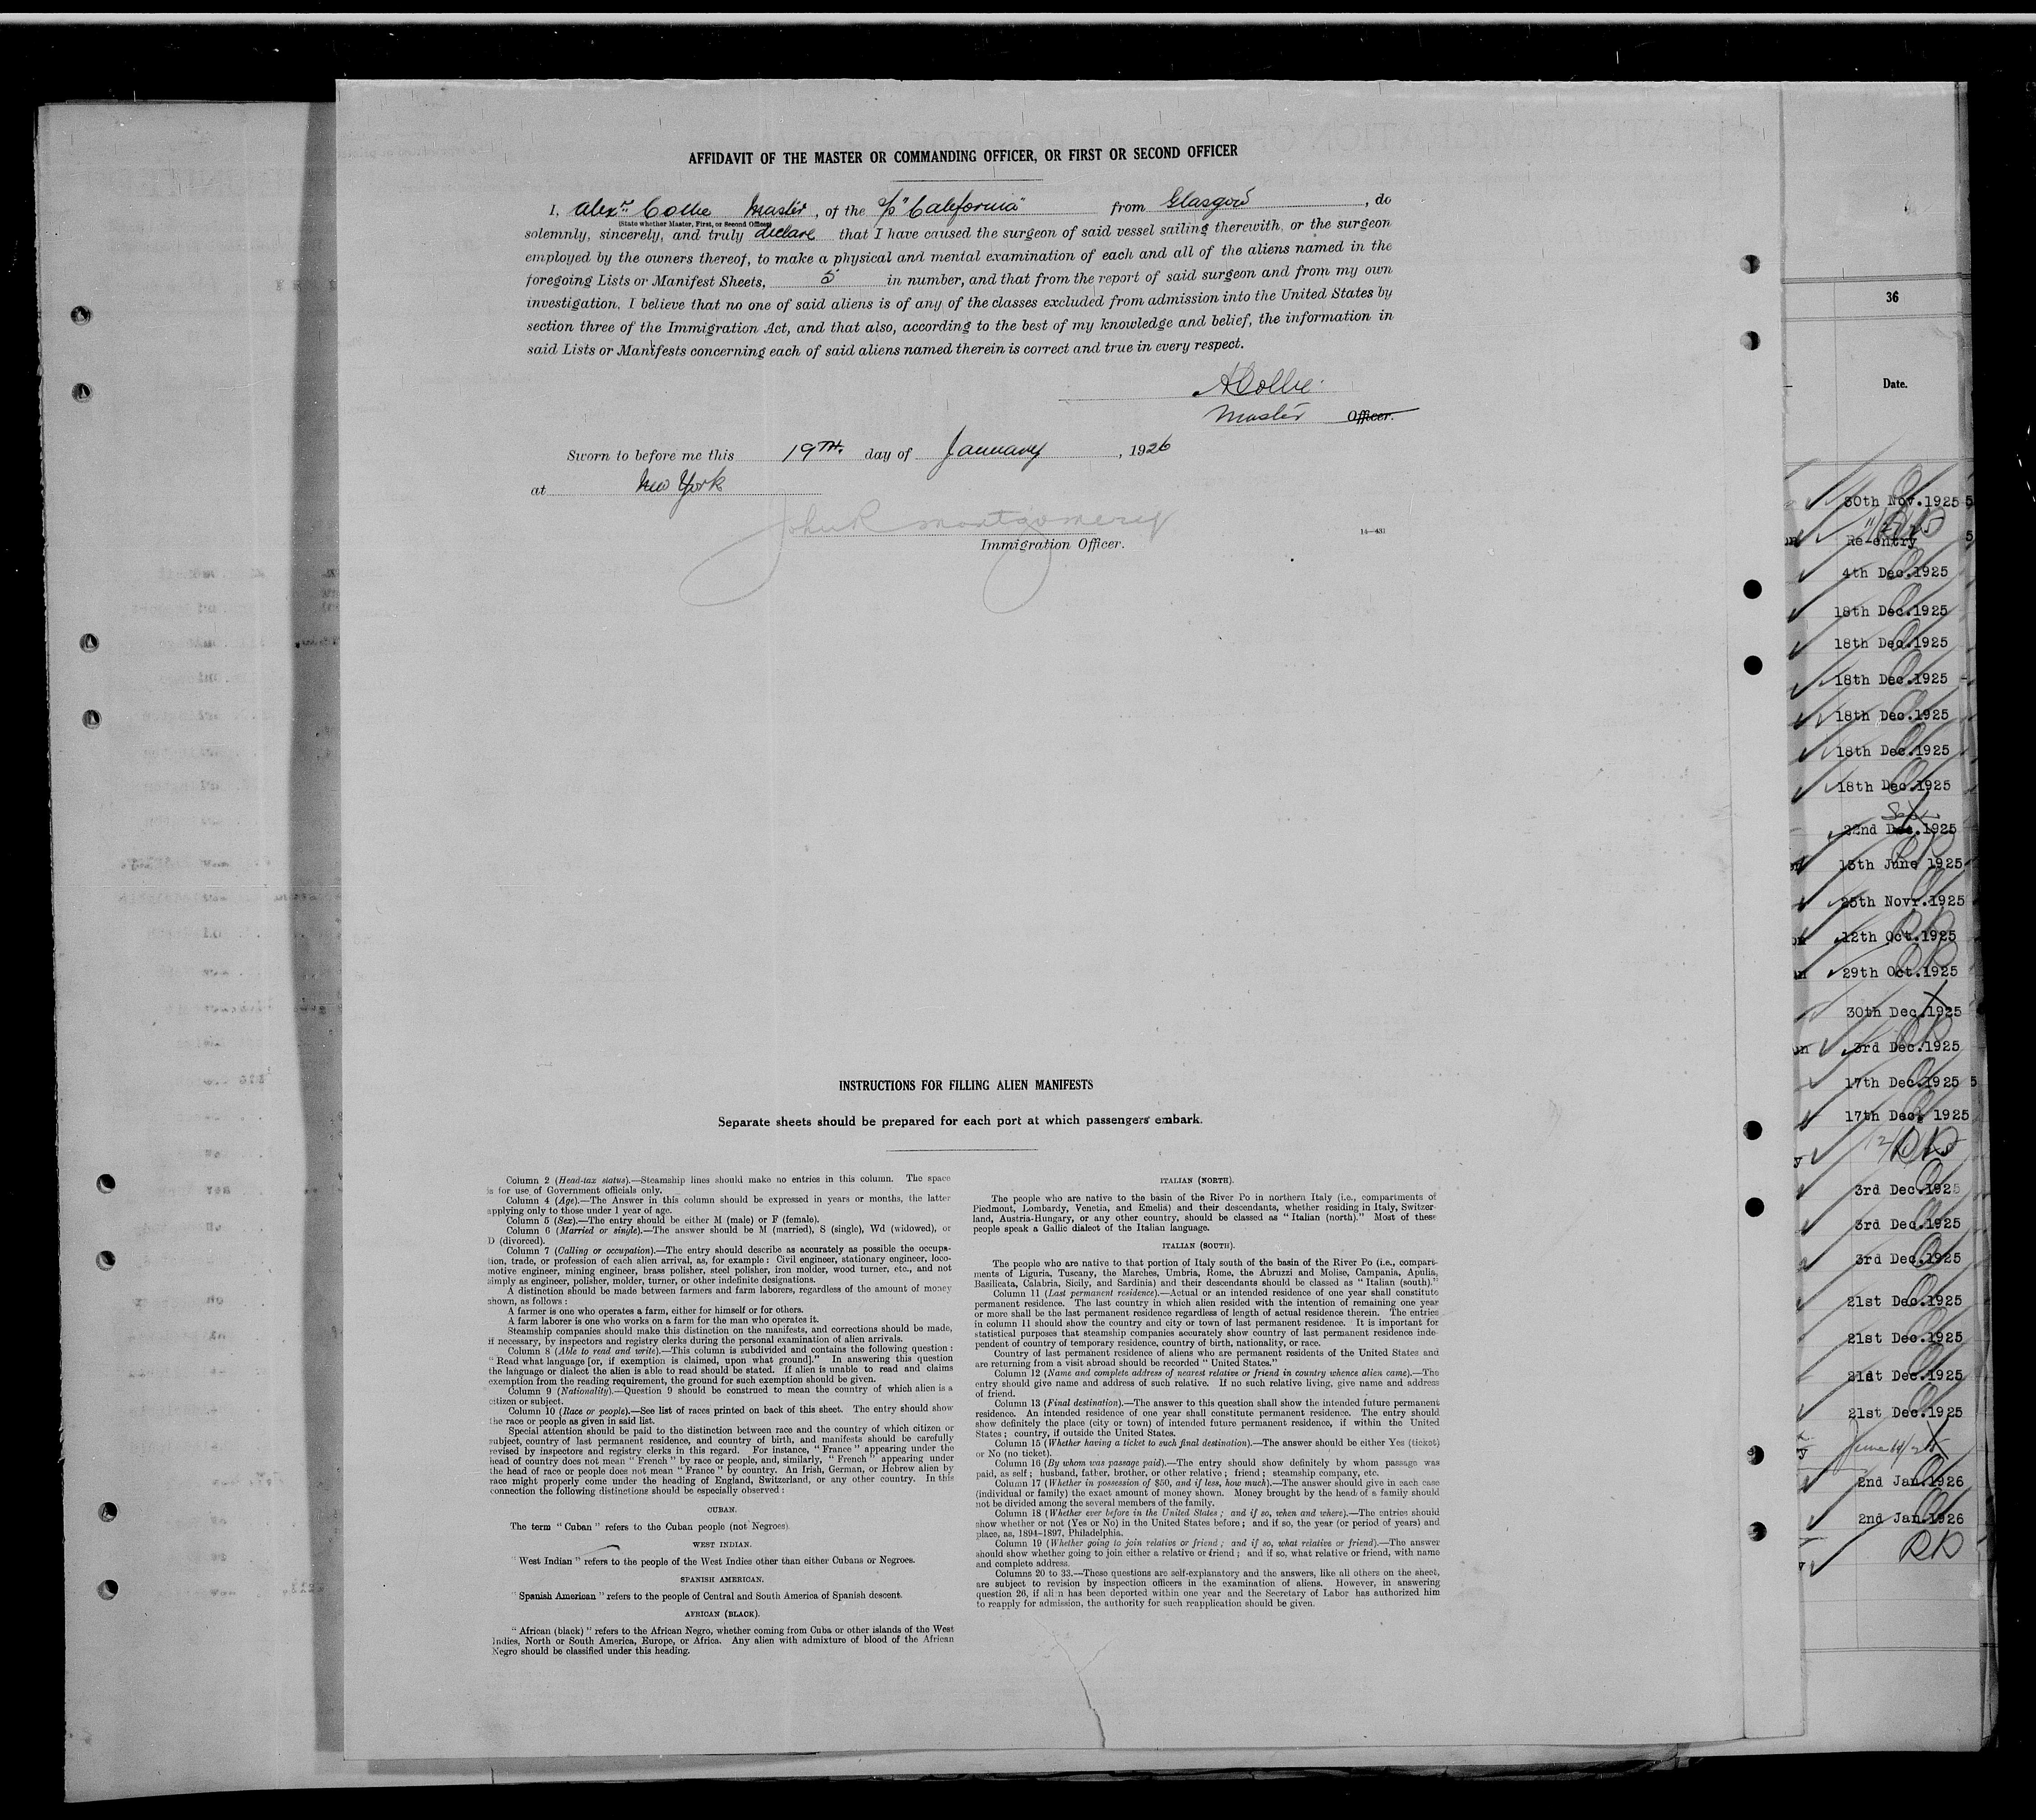 AFFIDAVIT OF THE MASTER OR COMMANDING OFFICER, OR FIRST OR SECOND OFFICER
I, Alexr. Collie Master, of the S/S "California" from Glasgow, do
(State whether Master, First, or Second Officer)
solemnly, sincerely, and truly declare that I have caused the surgeon of said vessel sailing therewith, or the surgeon
employed by the owners thereof, to make a physical and mental examination of each and all of the aliens named in the
foregoing Lists or Manifest Sheets, 5 in number, and that from the report of said surgeon and from my own
investigation, I believe that no one of said aliens is of any of the classes excluded from admission into the United States by
section three of the Immigration Act, and that also, according to the best of my knowledge and belief, the information in
said Lists or Manifests concerning each of said aliens named therein is correct and true in every respect.
A Collie.
Master Officer.
Sworn to before me this 19TH. day of January, 1926
at New York
John R Montgomery
Immigration Officer.
14—431
INSTRUCTIONS FOR FILLING ALIEN MANIFESTS
Separate sheets should be prepared for each port at which passengers embark.
Column 2 (Head-tax status).—Steamship lines should make no entries in this column. The space
is for use of Government officials only.
Column 4 (Age).—The Answer in this column should be expressed in years or months, the latter
applying only to those under 1 year of age.
Column 5 (Sex).—The entry should be either M (male) or F (female).
Column 6 (Married or single).—The answer should be M (married), S (single), Wd (widowed), or
D (divorced).
Column 7 (Calling or occupation).—The entry should describe as accurately as possible the occupa-
tion, trade, or profession of each alien arrival, as, for example: Civil engineer, stationary engineer, loco-
motive engineer, mining engineer, brass polisher, steel polisher, iron molder, wood turner, etc., and not
simply as engineer, polisher, molder, turner, or other indefinite designations.
A distinction should be made between farmers and farm laborers, regardless of the amount of money
shown, as follows:
A farmer is one who operates a farm, either for himself or for others.
A farm laborer is one who works on a farm for the man who operates it.
Steamship companies should make this distinction on the manifests, and corrections should be made,
if necessary, by inspectors and registry clerks during the personal examination of alien arrivals.
Column 8 (Able to read and write).—This column is subdivided and contains the following question:
"Read what language [or, if exemption is claimed, upon what ground]." In answering this question
the language or dialect the alien is able to read should be stated. If alien is unable to read and claims
exemption from the reading requirement, the ground for such exemption should be given.
Column 9 (Nationality).—Question 9 should be construed to mean the country of which alien is a
citizen or subject.
Column 10 (Race or people).—See list of races printed on back of this sheet. The entry should show
the race or people as given in said list.
Special attention should be paid to the distinction between race and the country of which citizen or
subject, country of last permanent residence, and country of birth, and manifests should be carefully
revised by inspectors and registry clerks in this regard. For instance, "France" appearing under the
head of country does not mean "French" by race or people, and, similarly, "French" appearing under
the head of race or people does not mean "France" by country. An Irish, German, or Hebrew alien by
race might properly come under the heading of England, Switzerland, or any other country. In this
connection the following distinctions should be especially observed:
CUBAN.
The term "Cuban" refers to the Cuban people (not Negroes).
WEST INDIAN.
"West Indian" refers to the people of the West Indies other than either Cubans or Negroes.
SPANISH AMERICAN.
"Spanish American" refers to the people of Central and South America of Spanish descent.
AFRICAN (BLACK).
"African (black)" refers to the African Negro, whether coming from Cuba or other islands of the West
Indies, North or South America, Europe, or Africa. Any alien with admixture of blood of the African
Negro should be classified under this heading.
ITALIAN (NORTH).
The people who are native to the basin of the River Po in northern Italy (i.e., compartments of
Piedmont, Lombardy, Venetia, and Emelia) and their descendants, whether residing in Italy, Switzer-
land, Austria-Hungary, or any other country, should be classed as "Italian (north)." Most of these
people speak a Gallic dialect of the Italian language.
ITALIAN (SOUTH).
The people who are native to that portion of Italy south of the basin of the River Po (i.e., compart-
ments of Liguria, Tuscany, the Marches, Umbria, Rome, the Abruzzi and Molise, Campania, Apulia,
Basilicata, Calabria, Sicily, and Sardinia) and their descendants should be classed as "Italian (south)."
Column 11 (Last permanent residence).—Actual or an intended residence of one year shall constitute
permanent residence. The last country in which alien resided with the intention of remaining one year
or more shall be the last permanent residence regardless of length of actual residence therein. The entries
in column 11 should show the country and city or town of last permanent residence. It is important for
statistical purposes that steamship companies accurately show country of last permanent residence inde-
pendent of country of temporary residence, country of birth, nationality, or race.
Country of last permanent residence of aliens who are permanent residents of the United States and
are returning from a visit abroad should be recorded "United States."
Column 12 (Name and complete address of nearest relative or friend in country whence alien came).—The
entry should give name and address of such relative. If no such relative living, give name and address
of friend.
Column 13 (Final destination).—The answer to this question shall show the intended future permanent
residence. An intended residence of one year shall constitute permanent residence. The entry should
show definitely the place (city or town) of intended future permanent residence, if within the United
States; country, if outside the United States.
Column 15 (Whether having a ticket to such final destination).—The answer should be either Yes (ticket)
or No (no ticket).
Column 16 (By whom was passage paid).—The entry should show definitely by whom passage was
paid, as self; husband, father, brother, or other relative; friend; steamship company, etc.
Column 17 (Whether in possession of $50, and if less, how much).—The answer should give in each case
(individual or family) the exact amount of money shown. Money brought by the head of a family should
not be divided among the several members of the family.
Column 18 (Whether ever before in the United States; and if so, when and where).—The entries should
show whether or not (Yes or No) in the United States before; and if so, the year (or period of years) and
place, as, 1894-1897, Philadelphia.
Column 19 (Whether going to join relative or friend; and if so, what relative or friend).—The answer
should show whether going to join either a relative or friend; and if so, what relative or friend, with name
and complete address.
Columns 20 to 33.—These questions are self-explanatory and the answers, like all others on the sheet,
are subject to revision by inspection officers in the examination of aliens. However, in answering
question 26, if alien has been deported within one year and the Secretary of Labor has authorized him
to reapply for admission, the authority for such reapplication should be given.
36
Date.
30th Nov.1925
Re-entry
4th Dec.1925
18th Dec.1925
18th Dec.1925
18th Dec.1925
18th Dec.1925
18th Dec.1925
18th Dec.1925
22nd Dec.1925
13th June 1925
25th Novr.1925
12th Oct.1925
29th Oct.1925
30th Dec.1925
3rd Dec.1925
17th Dec.1925
17th Dec. 1925
3rd Dec.1925
3rd Dec.1925
3rd Dec.1925
21st Dec.1925
21st Dec.1925
21st Dec.1925
21st Dec.1925
2nd Jan.1926
2nd Jan.1926